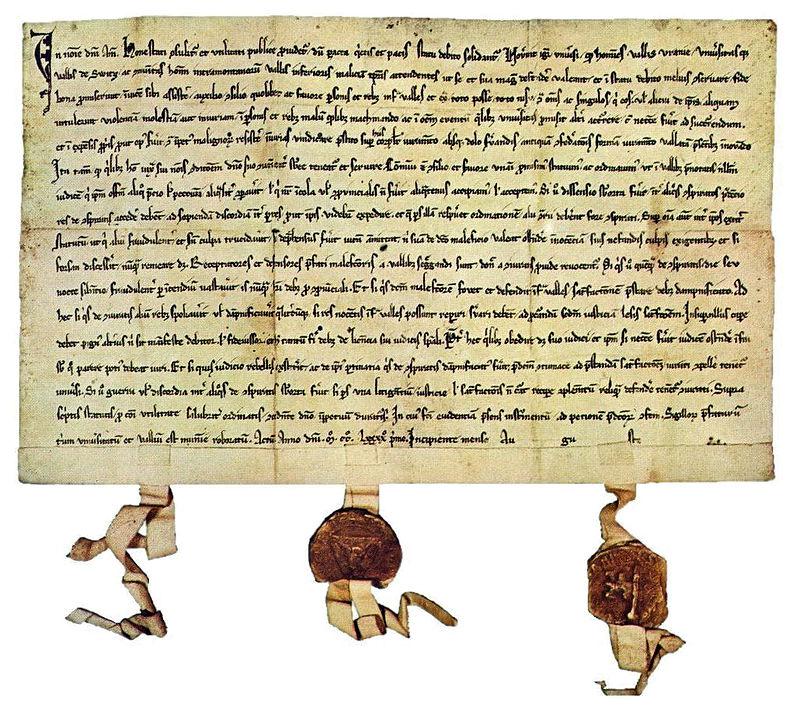 In noīe dn̄i Am̄. Honestati ꝯsulit̄ et utilitati publice ꝓuidet̄ dū pacta quietis et pacis statu debito solidant̄. Nouerint igit̄ uniuersi q hom̄ies vallis uranie uniuersitasq
vallis de Switz ac mūnitas hom̄ intramontanorū vallis inferioris maliciā tp̄ris attendentes ut se et sua magis defēdē valeant et ī statu debito melius ꝯseruare fide
bona ꝓmiserunt inuicē sibi assistē auxilio ꝯsilio quolibet ac fauore ꝑsonis et rebꝫ infra valles et extra toto posse toto nisu ꝯtra om̄s ac singulos q eis vel alicui de ip̄is aliquam
intulerint violenciā molestiā aut iniuriam ī ꝑsonis et rebꝫ malū quodlibet machinando ac ī om̄ē euentū quelibet uniuersitas ꝓmisit alt̄i accurrere cū necesse fuerit ad succurrendum
et ī expensis ꝓpriis ꝓut opus fuerit ꝯtra īpetus malignorū resistē iniurias vindicare prestito sup hiis corporaliter iuramento absqꝫ dolo seruandis antiquā ꝯfederationis formā iuramento vallatā presentibꝫ innouando
Ita tamen q quilibet homo iuxta sui nois ꝯdicionem dn̄o suo ꝯuenient̄ subesse teneat̄ et seruire Com̄uni etiā ꝯsilio et fauore unanimi promisimus statuimus ac ordinauimus ut ī vallibꝫ prenotatis nullum
iudicē qui ipsum officiū aliquo precio vel peccunia aliqualit̄ ꝯparauerit vel qui nr̄ incola vel ꝓuincialis non fuerit aliquatenus accipiamus vel acceptemus Si vero dissensio suborta fuerit int̄ aliquos ꝯspiratos prudencio-
res de ꝯspiratis accedere debent ad sopiendam discordiā int̄ partes ꝓut ip̄is videbit̄ expedire et que pars illā respueret ordinationē alii ꝯtrarii deberent fore ꝯspirati Super omnia autem int̄ ipsos extitit
statutum ut qui aliū fraudulenter et sine culpa trucidauerit si deprehensus fuerit vitā amittat nisi suā de dicto maleficio valeat ostendere innocenciā suis nefandis culpis exigentibꝫ et si
forsan discesserit nunquam remeare debet Receptatores et defensores prefati malefactoris a vallibꝫ segregandi sunt donec a ꝯiuratis prouide reuocentur Si quis vero quemquam de ꝯspiratis die seu
nocte silentio fraudulent̄ per incendium vastauerit is nunquam haberi debet pro ꝯprouinciali Et si quis dictum malefactorē fouet et defendit infra valles satisfactionē prestare debet dampnificato Ad
hec si quis de ꝯiuratis aliū rebꝫ spoliauerit vel dampnificauerit qualitercumque si res nocentis infra valles possunt reperiri seruari debent ad procurandā secundum iusticiā lesis satisfactionem Insuper nullus capere
debet pignus alterius nisi sit manifeste debitor vel fideiussor et hoc tantū fieri debet de licencia sui iudicis speciali Preter hec quilibet obedire debet suo iudici et ipsum si necesse fuerit iudicē ostendere infra
sub quo parere pocius debeat iuri Et si quis iudicio rebellis extiterit ac de ipsius pertinacia quis de ꝯspiratis dampnificatus fuerit predictum ꝯtumacē ad prestandā satisfactionē iurati ꝯpellere tenentur
uniuersi Si vero guerra vel discordia inter aliquos de ꝯspiratis suborta fuerit si pars una litigantium iusticie vel satisfactionis non curat recipere complementum reliquam defendere tenentur ꝯiurati Supra
scriptis statutis pro communi utilitate salubriter ordinatis ꝯcedente domino in perpetuum duraturis In cuius facti euidentiam presens instrumentum ad peticionem predictorum ꝯfectum Sigillorum prefatarum
trium uniuersitatum et vallium est munimine roboratum. Actum Anno dn̄i M° CC° LXXXX° primo Incipiente mense Au gu sto